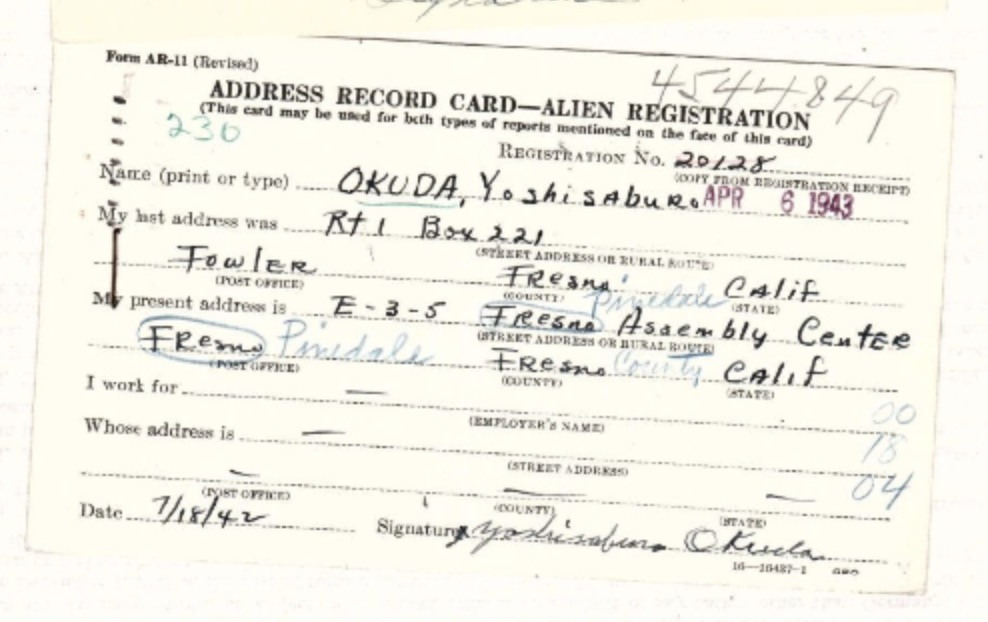 Form AR-11 (Revised)
4544849
ADDRESS RECORD CARD—ALIEN REGISTRATION
(This card may be used for both types of reports mentioned on the face of this card)
230
REGISTRATION No. 20128
(COPY FROM REGISTRATION RECEIPT)
Name (print or type) OKUDA, Yoshisaburo APR 6 1943
My last address was Rt 1 Box 221
(STREET ADDRESS OR RURAL ROUTE)
Fowler Fresno Calif
(POST OFFICE) (COUNTY) (STATE)
Pinedale
My present address is E-3-5 Fresno Assembly Center
(STREET ADDRESS OR RURAL ROUTE)
Fresno Pinedale Fresno County Calif
(POST OFFICE) (COUNTY) (STATE)
I work for —
(EMPLOYER'S NAME)
00
Whose address is —
(STREET ADDRESS)
18
— — —
04
(POST OFFICE) (COUNTY) (STATE)
Date 7/18/42 Signature x Yoshisaburo Okuda
16—16437-1 GPO